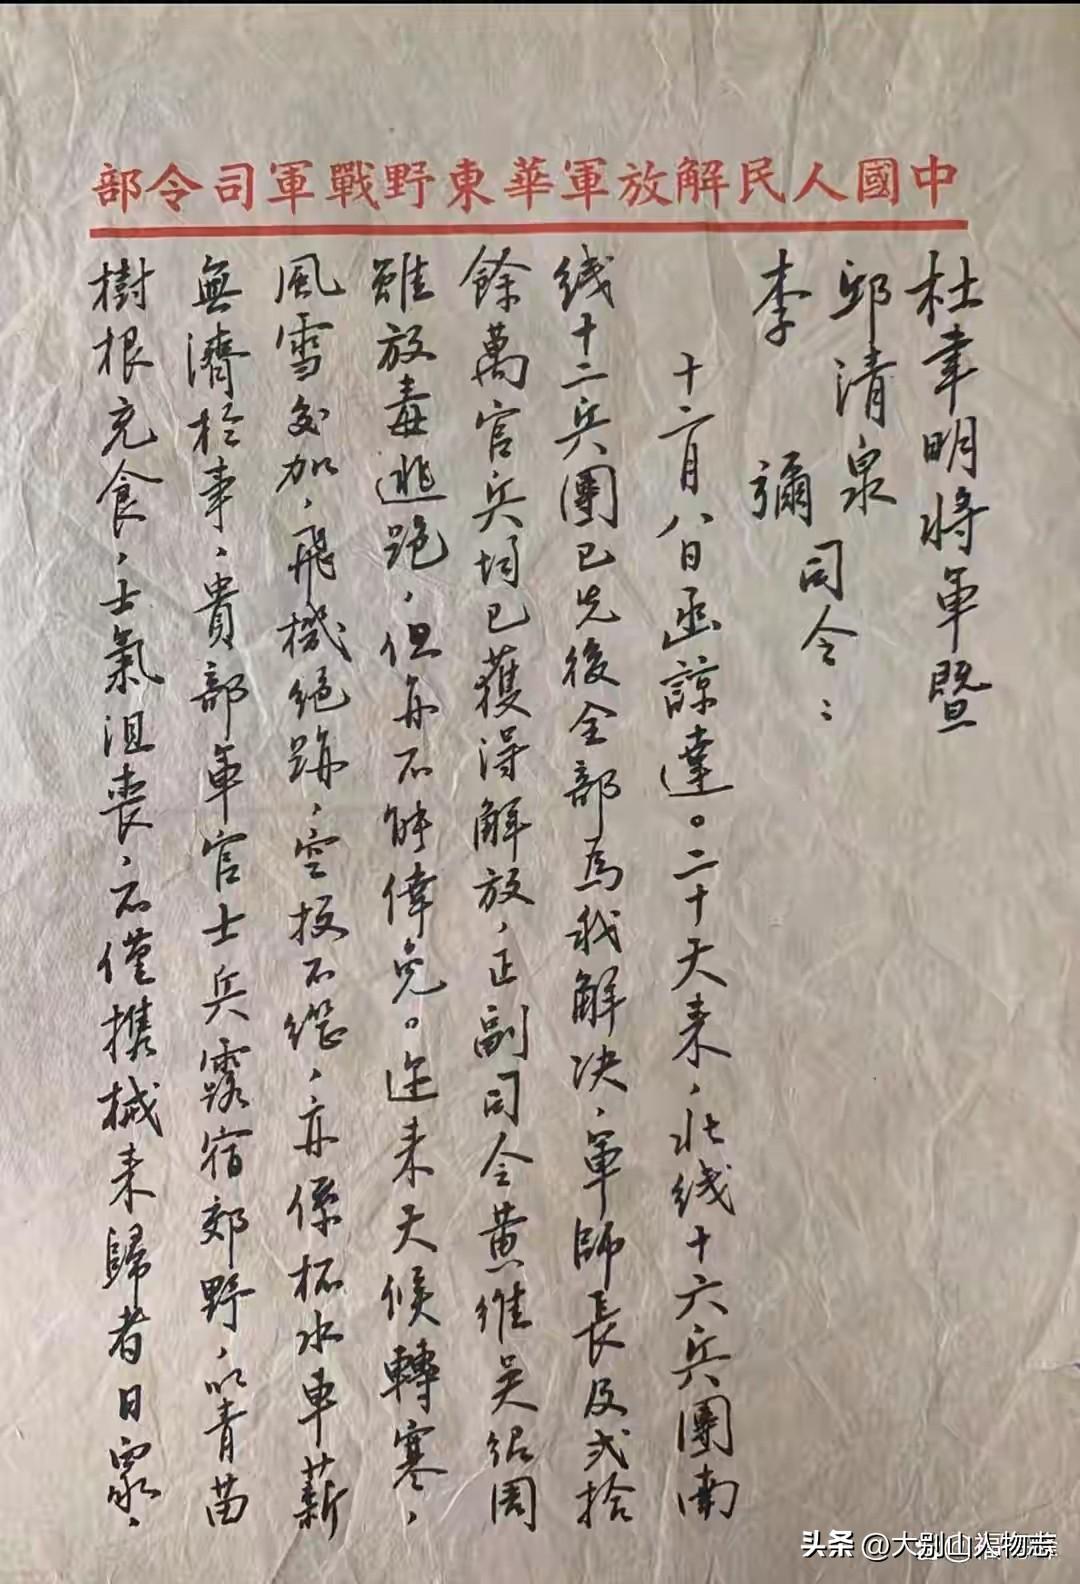 中國人民解放軍華東野戰軍司令部
杜聿明將軍暨
邱清泉
李彌司令：
十二月八日函諒達。二十天来，北线十六兵團南
线十二兵團已先後全部為我解决，軍師長及弍拾
餘萬官兵均已獲得解放，正副司令黄维吴绍周
雖放毒逃跑，但亦不能倖免。近来天候轉寒，
風雪交加，飛機絕跡，空投不繼，亦係杯水車薪
無濟於事，貴部軍官士兵露宿郊野，以青苗
樹根充食，士氣沮喪，不僅攜械来歸者日衆，
头条 @大别山人物志